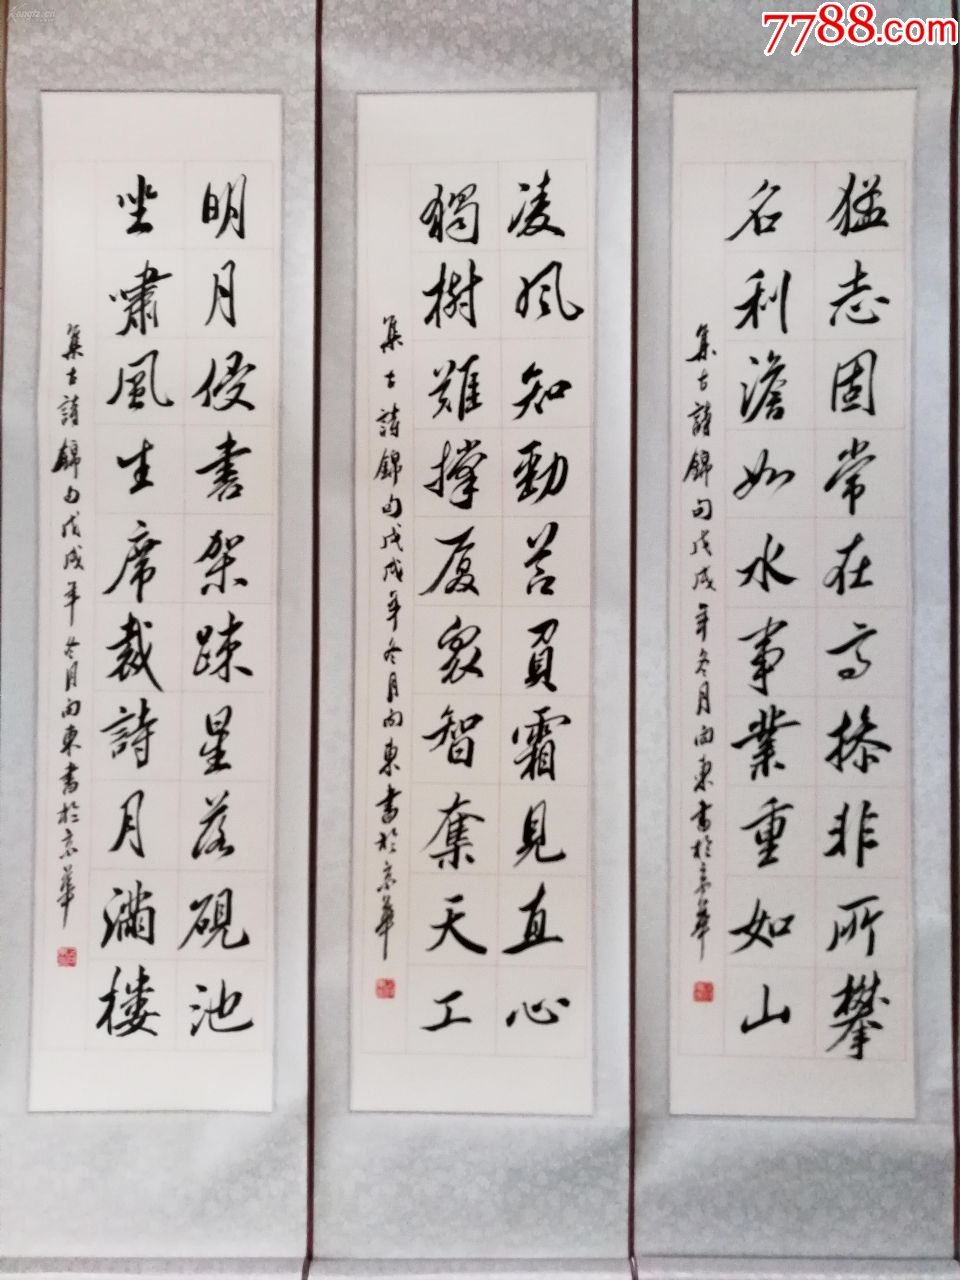 kongfz.cn
7788.com
猛志固常在高操非所攀
名利澹如水事業重如山
集古詩錦句戊戌年冬月向東書於京華
凌風知勁節負霜見直心
獨樹難撐厦衆智奪天工
集古詩錦句戊戌年冬月向東書於京華
明月侵書架疎星落硯池
坐嘯風生席裁詩月滿樓
集古詩錦句戊戌年冬月向東書於京華